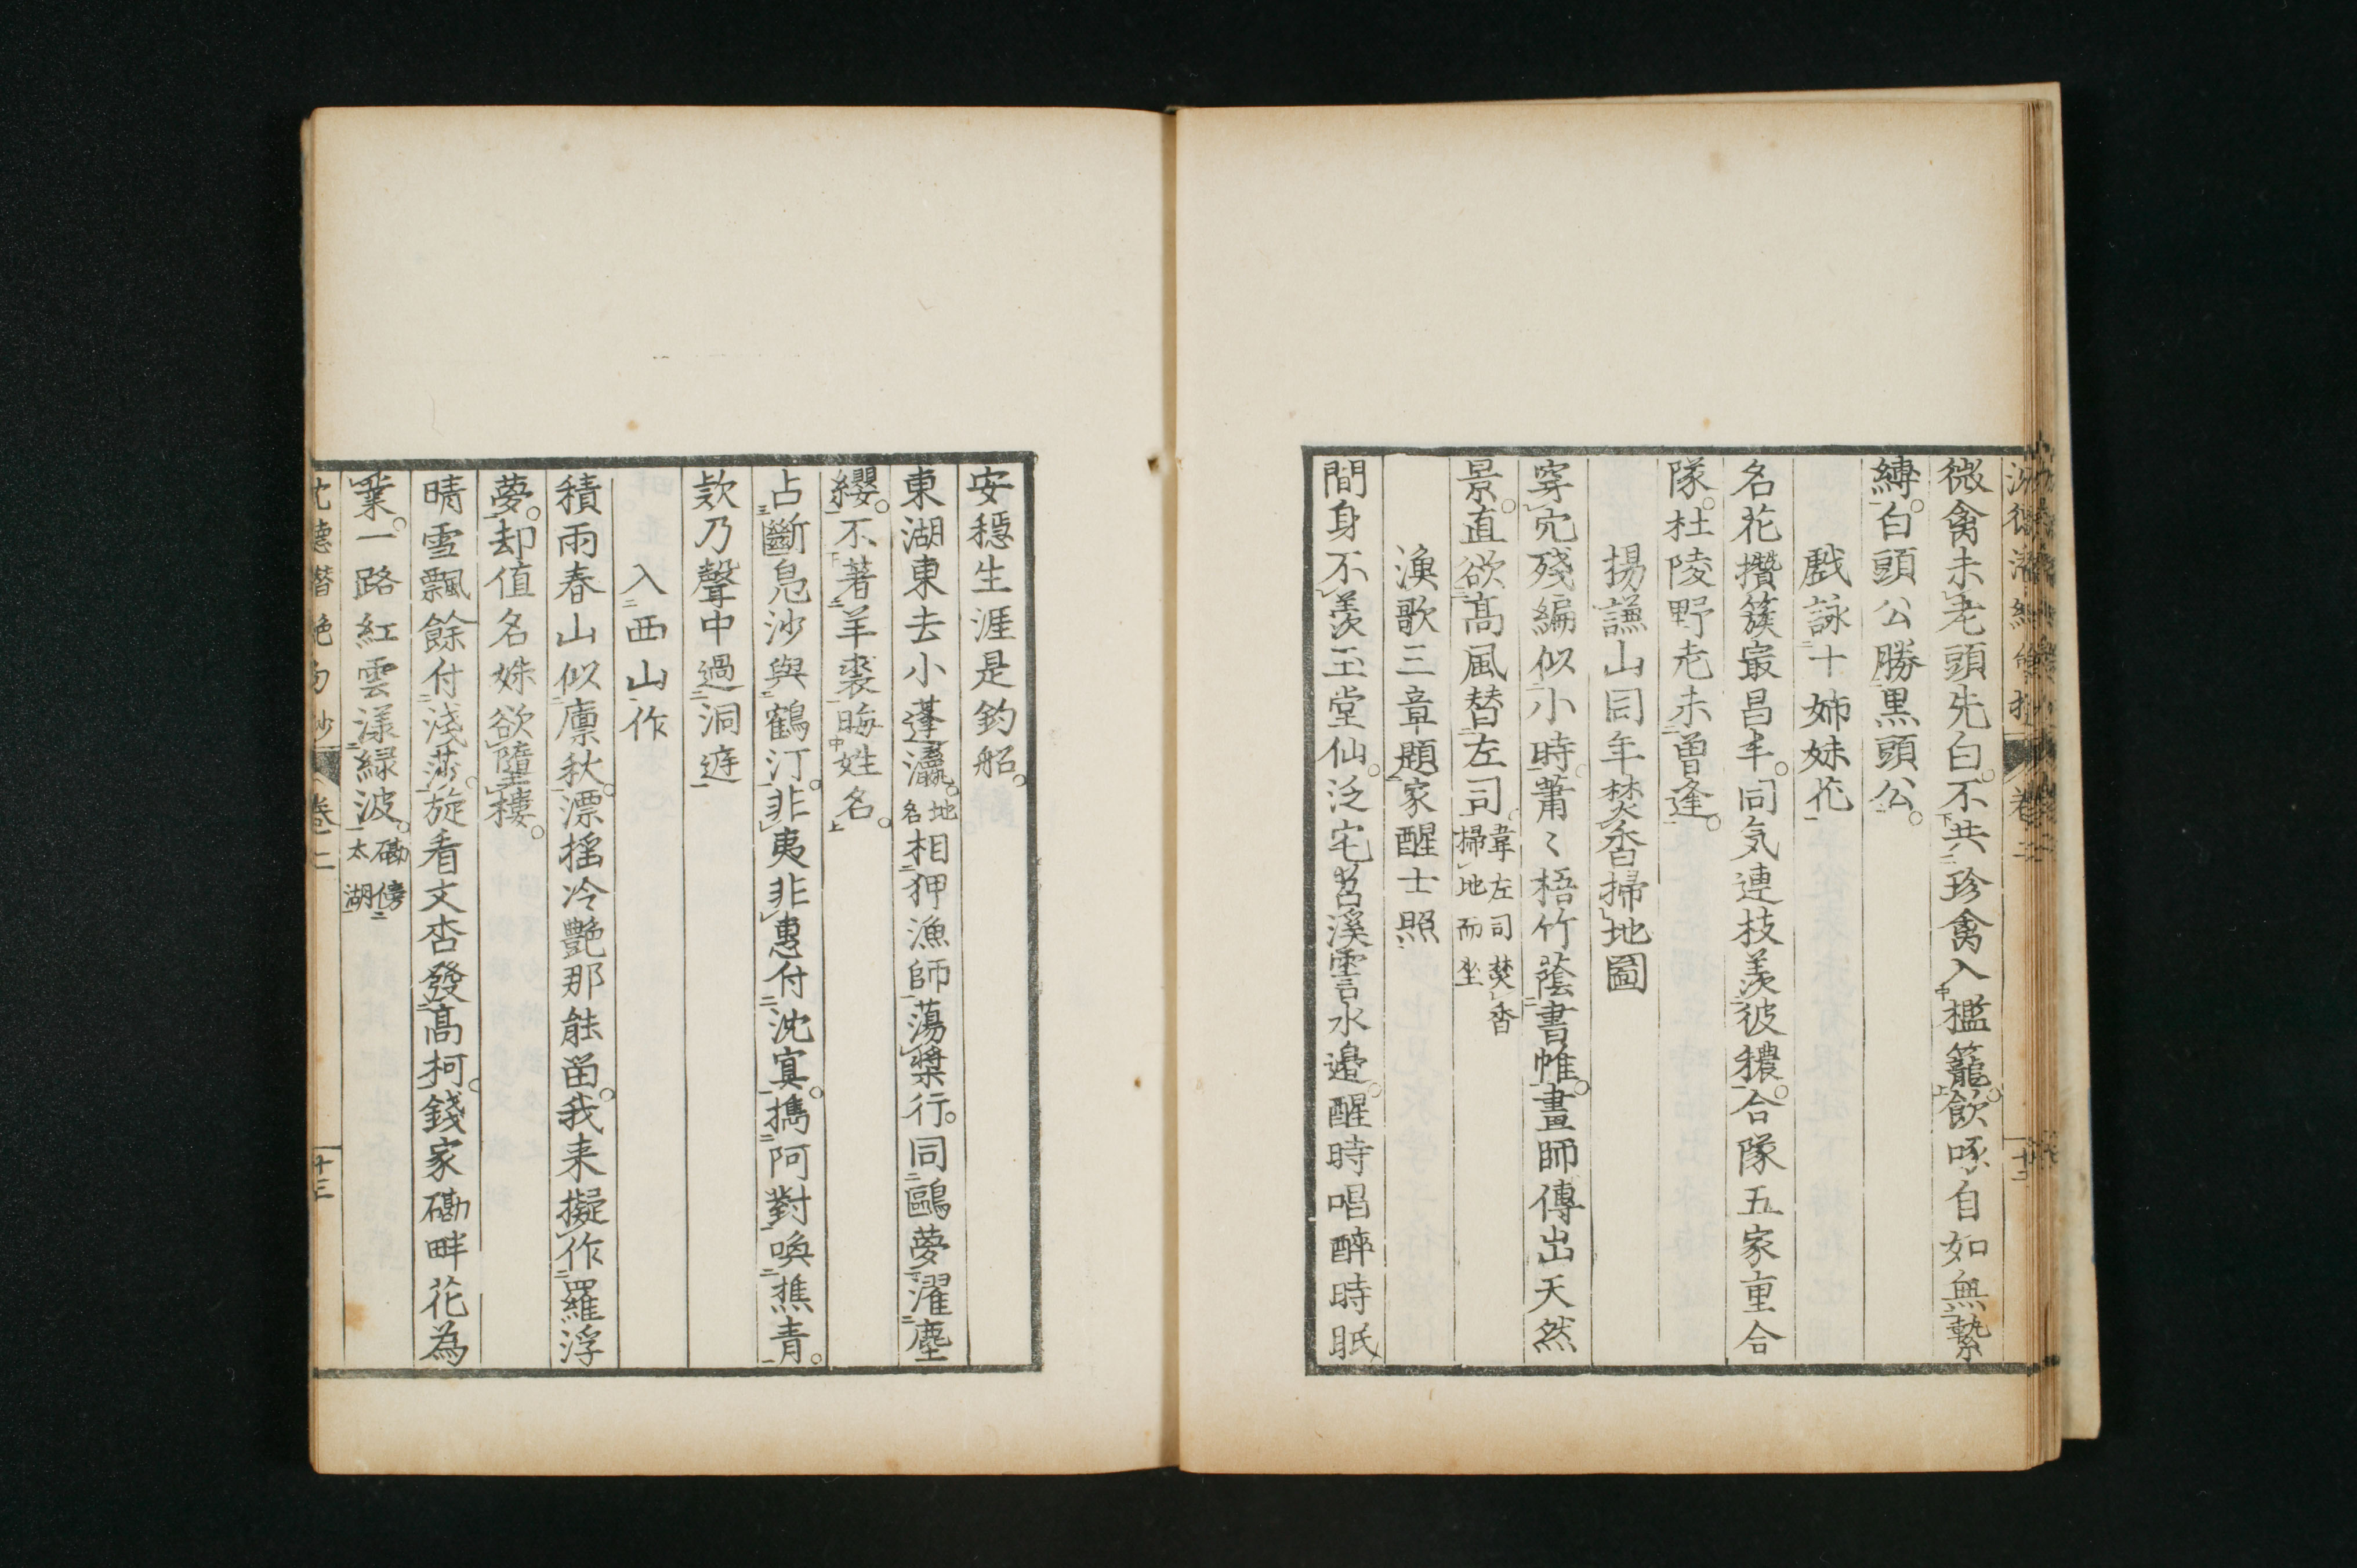 微禽未老頭先白。不共珍禽入檻籠。飲啄自如無繫
縛。白頭公勝黒頭公。
戯詠十姉妹花
名花攢簇最昌丰。同気連枝羨彼穠。合隊五家重合
隊。杜陵野老未曽逢。
揚謙山同年焚香掃地圖
穿穴殘編似小時。蕭〻梧竹蔭書帷。畫師傳出天然
景。直欲髙風替左司。韋左司焚香
掃地而坐
漁歌三章題家醒士照
間身不羨玉堂仙。泛宅苕溪霅水邉。醒時唱醉時眠
安穏生涯是釣船。
東湖東去小蓬瀛。地
名相狎漁師蕩槳行。同鷗夢濯塵
纓。不著羊裘晦姓名。
占斷凫沙與鶴汀。非夷非惠付沈寘。擕阿對喚樵青。
欸乃聲中過洞庭
入西山作
積雨春山似廪秋。漂揺冷艷那能畄。我来擬作羅浮
夢。却值名姝欲墮樓。
晴雪飄餘付淺莎。旋看文杏發髙柯。錢家磡畔花為
業。一路紅雲漾緑波。磡傍
太湖
沈德潜絶句抄 卷二 十三